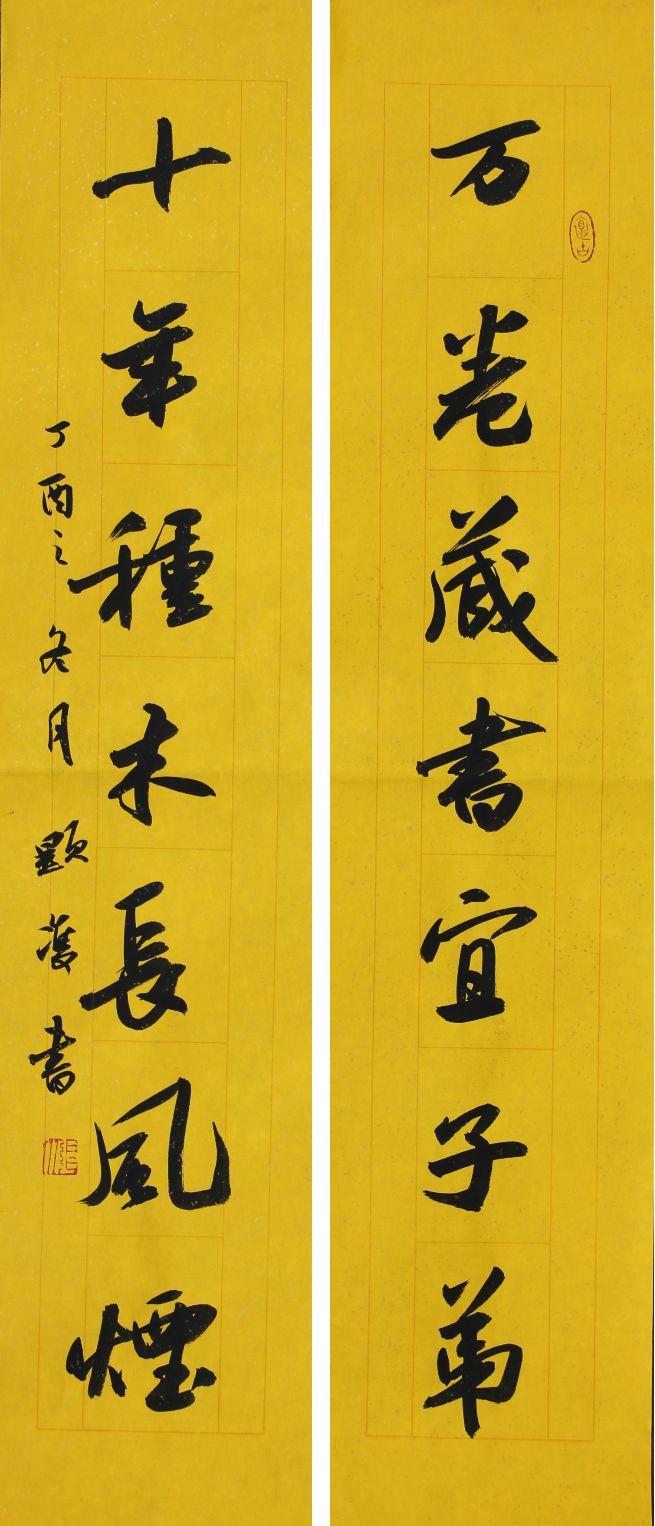 万卷藏書宜子弟
十年種木長風煙
丁酉之冬月顯濩書